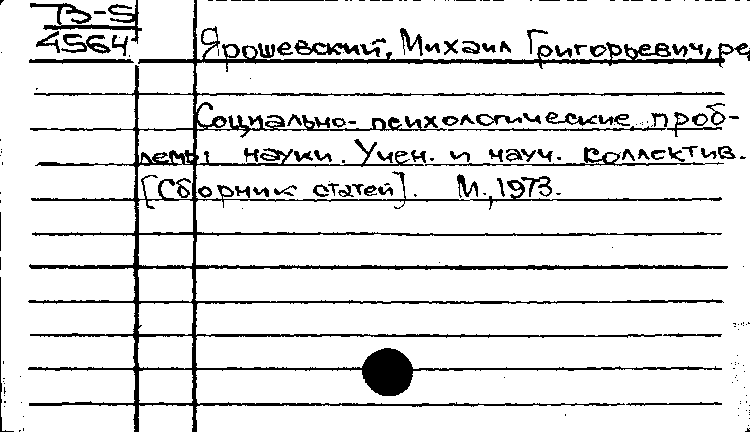 ТЗ-5
4564
Ярошевский, Михаил Григорьевич, ре
Социально-психологические проб-
лемы науки. Учен. и науч. коллектив.
[Сборник статей]. М., 1973.